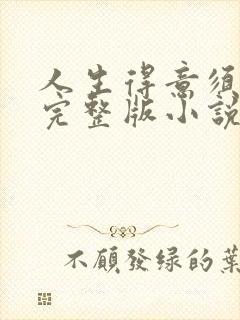 人生得意须
完整版小說
不願發绿的葉